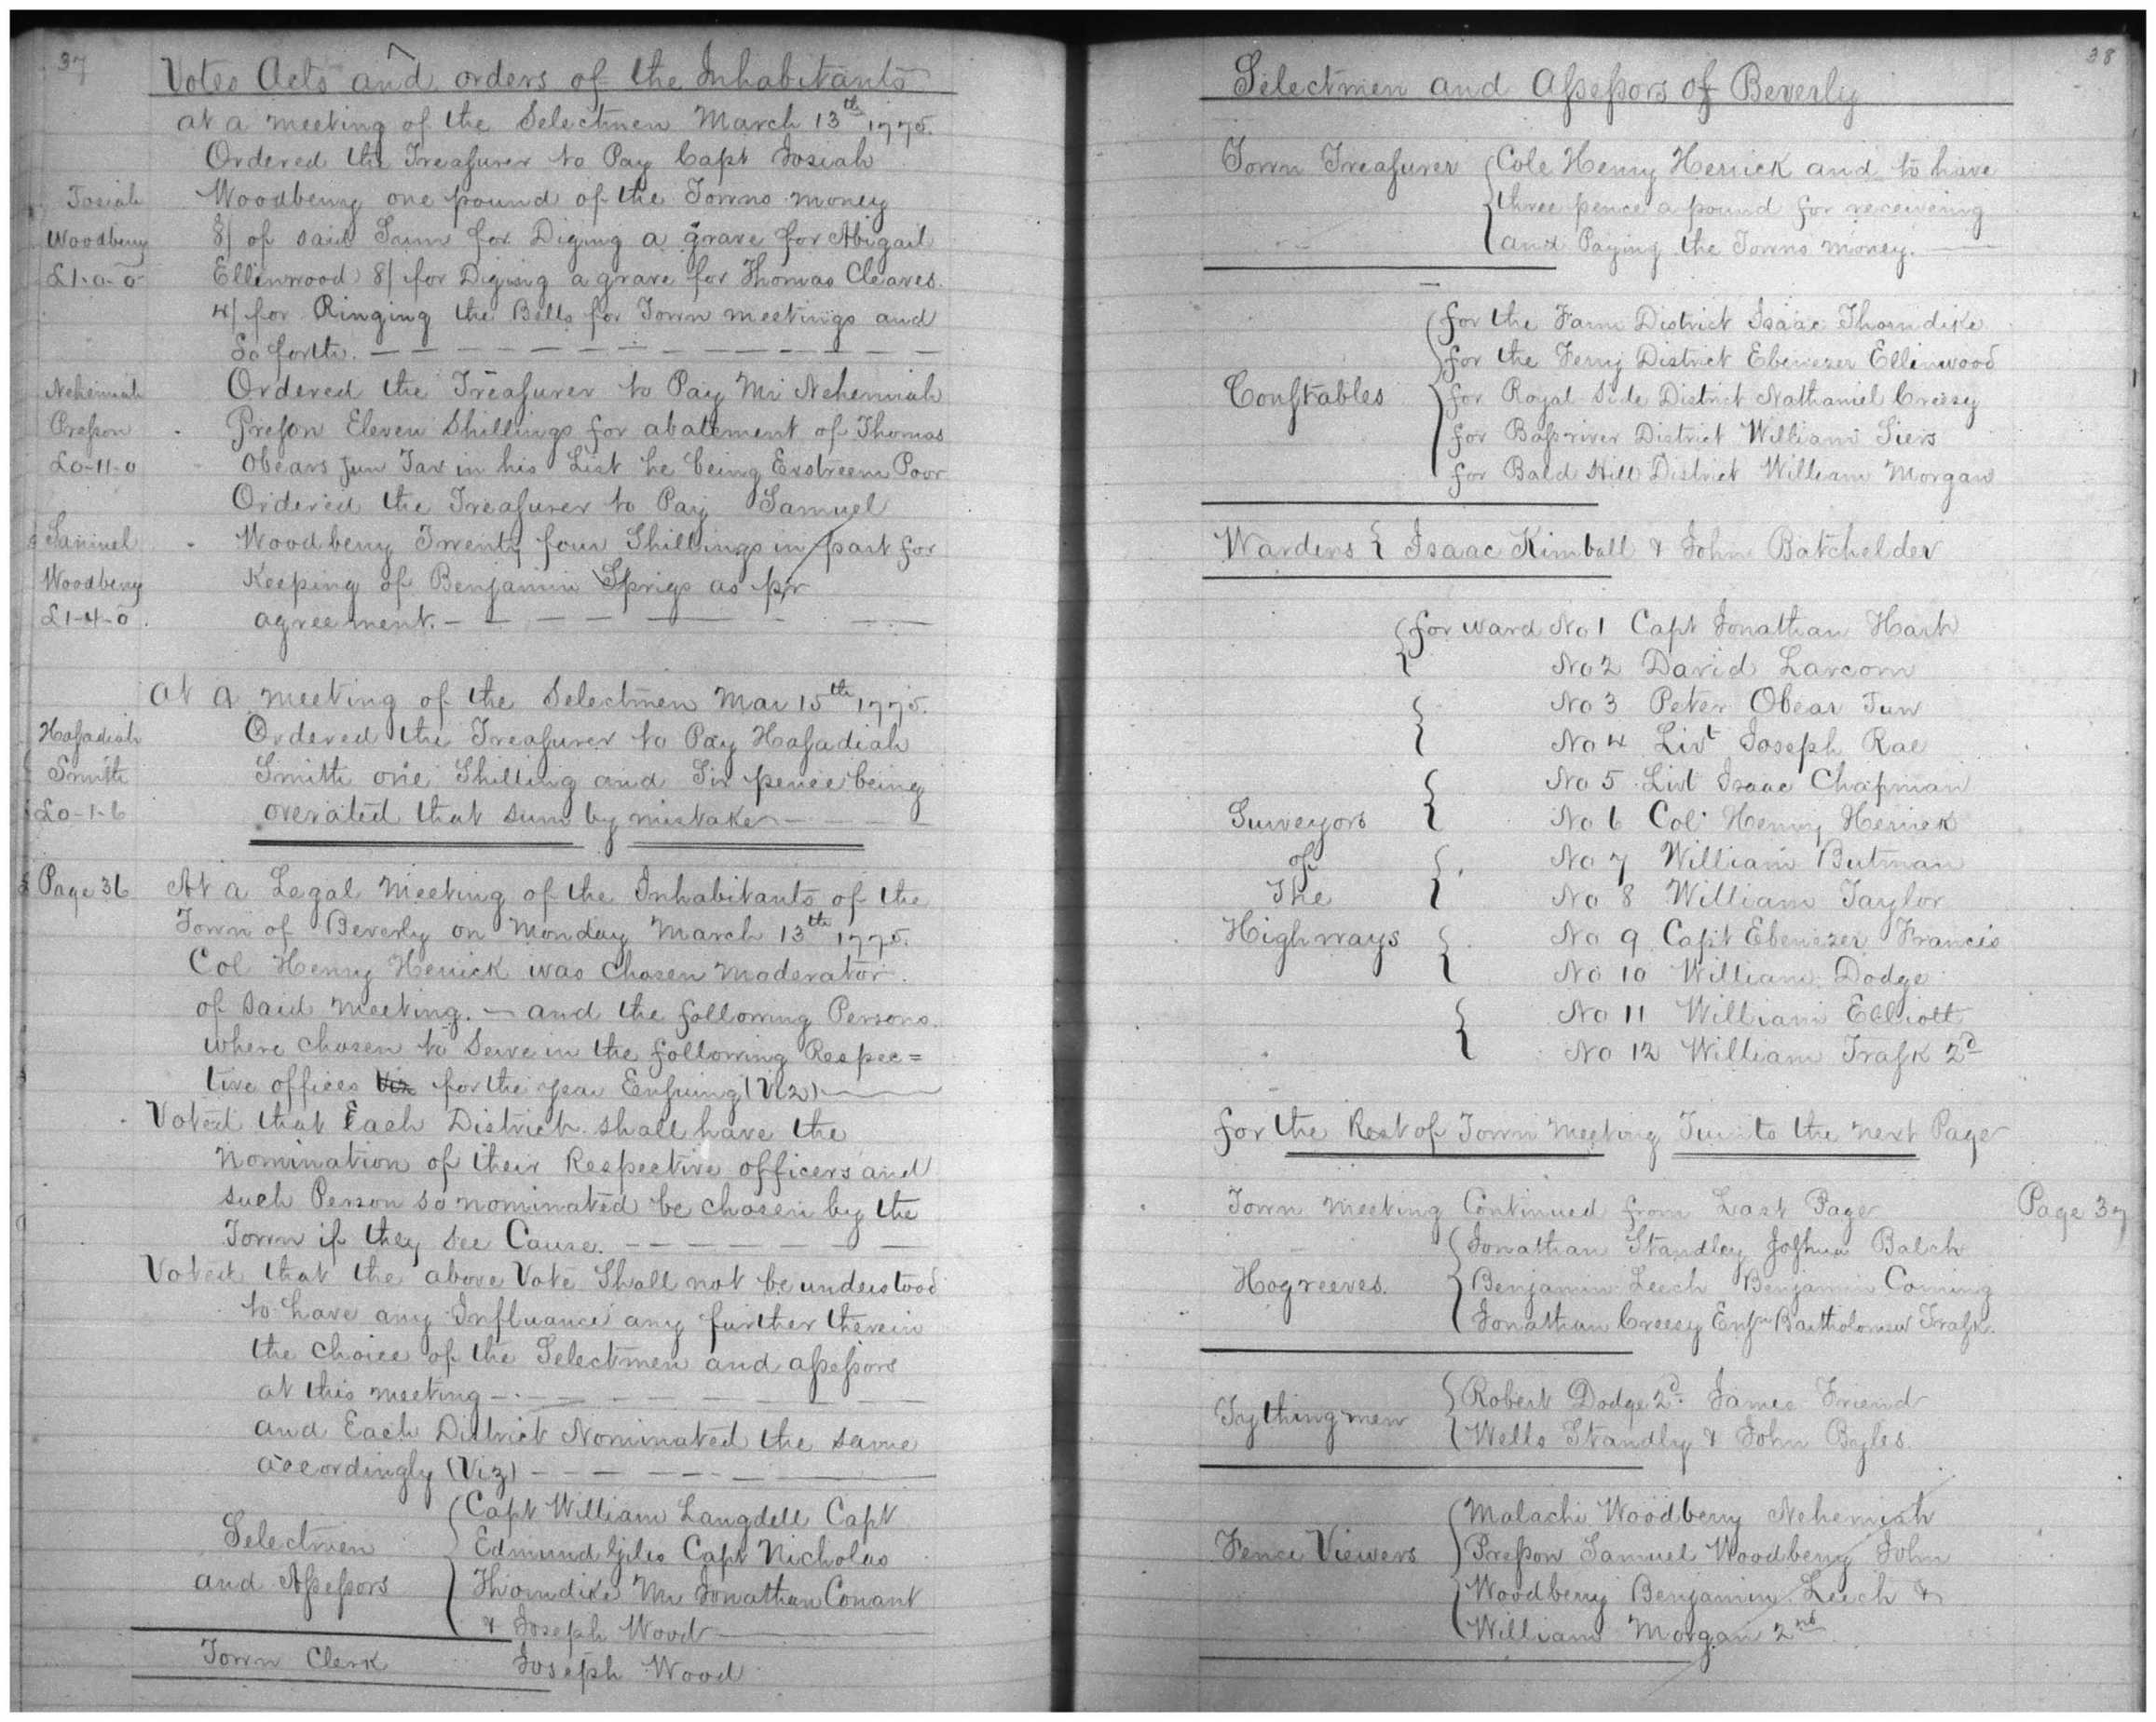 37
Votes Acts and orders of the Inhabitants
at a meeting of the Selectmen March 13th 1775.
Ordered the Treasurer to Pay Capt Josiah
Josiah Woodberry one pound of the Towns money
Woodberry 8/ of said Sum for Diging a grave for Abigail
£1-0-0 Ellinwood 8/ for Diging a grave for Thomas Cleaves.
4/ for Ringing the Bells for Town meetings and
So forth.
Nehemiah Ordered the Treasurer to Pay Mr Nehemiah
Preson Preson Eleven Shillings for abatement of Thomas
£0-11-0 Obears Jun Tax in his List he being Exstreem Poor
Ordered the Treasurer to Pay Samuel
Samuel Woodberry Twenty four Shillings in part for
Woodberry Keeping of Benjamin Sprigs as pr
£1-4-0. agreement.
at a meeting of the Selectmen Mar 15th 1775.
Hasadiah Ordered the Treasurer to Pay Hasadiah
Smith Smith one Shilling and Six pence being
£0-1-6 overated that sum by mistake
Page 36 At a Legal Meeting of the Inhabitants of the
Town of Beverly on Monday March 13th 1775.
Col Henry Herrick was chosen Moderator
of said meeting. — and the following Persons
where chosen to Serve in the following Respec=
tive offices Viz for the year Ensuing (Viz)
Voted that Each District shall have the
Nomination of their Respective officers and
such Person so nominated be chosen by the
Town if they see Cause.
Voted that the above Vote Shall not be understood
to have any Influance any further therein
the choice of the Selectmen and assessors
at this meeting
and Each District Nominated the same
accordingly (Viz)
Capt William Langdell Capt
Selectmen Edmund Giles Capt Nicholas
and Assessors Thorndike Mr Jonathan Conant
& Joseph Wood
Town Clerk Joseph Wood
38
Selectmen and Assessors of Beverly
Town Treasurer Cole Henry Herrick and to have
three pence a pound for receiveing
and Paying the Towns money.
for the Farm District Isaac Thorndike
for the Ferry District Ebenezer Ellinwood
Constables for Royal Side District Nathaniel Cressy
for Bassriver District William Siers
for Bald Hill District William Morgan
Warders Isaac Kimball & John Batchelder
for ward No 1 Capt Jonathan Hart
No 2 David Larcom
No 3 Peter Obear Jun
No 4 Livt Joseph Rae
No 5 Livt Isaac Chapman
Surveyors No 6 Col Henry Herrick
of No 7 William Butman
The No 8 William Taylor
Highways No 9 Capt Ebenezer Francis
No 10 William Dodge
No 11 William Elliott
No 12 William Trask 2d
for the Rest of Town Meeting Turn to the next Page
Town meeting Continued from Last Page Page 37
Jonathan Standley Joshua Balch
Hogreeves. Benjamin Leech Benjamin Coming
Jonathan Cressy Ensn Bartholomew Trask.
Tythingmen Robert Dodge 2d. James Friend
Wells Standly & John Byles.
Malachi Woodberry Nehemiah
Fence Viewers Preson Samuel Woodberry John
Woodberry Benjamin Leech &
William Morgan 2nd